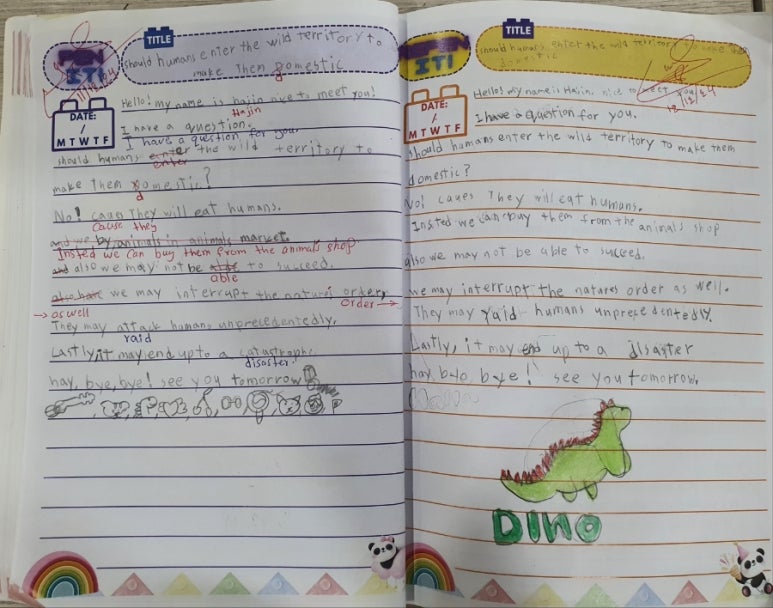 TITLE
should humans enter the wild territory to
make Them domestic
IT!
DATE:
/
M T W T F
Hello! my name is hajin nice to meet you!
Hajin
I have a question.
I have a question for you
should humans enter the wild territory to
enter
make Them domestic?
d
No! caues They will eat humans.
Cause they
and we by animals in animals market.
Insted we can buy them from the animals shop.
and also we may not be to succeed.
able
we may interrupt the natures order,
order
as well
They may attack humans unprecedentedly.
raid
Lastly, it may end up to a catastrophe
disaster!
hay, bye, bye! see you tomorrow
TITLE
should humans enter the wild territory to make them
domestic
IT!
12/12/24
DATE:
/
M T W T F
Hello! my name is Hajin. nice to meet you!
I have a question for you.
should humans enter the wild territory to make them
domestic?
No! caues They will eat humans.
Insted we can buy them from the animals shop
also we may not be able to succeed.
we may interrupt the natures order as well.
They may raid humans unprecedentedly.
Lastly, it may end up to a disaster
bye! see you tomorrow.
DINO